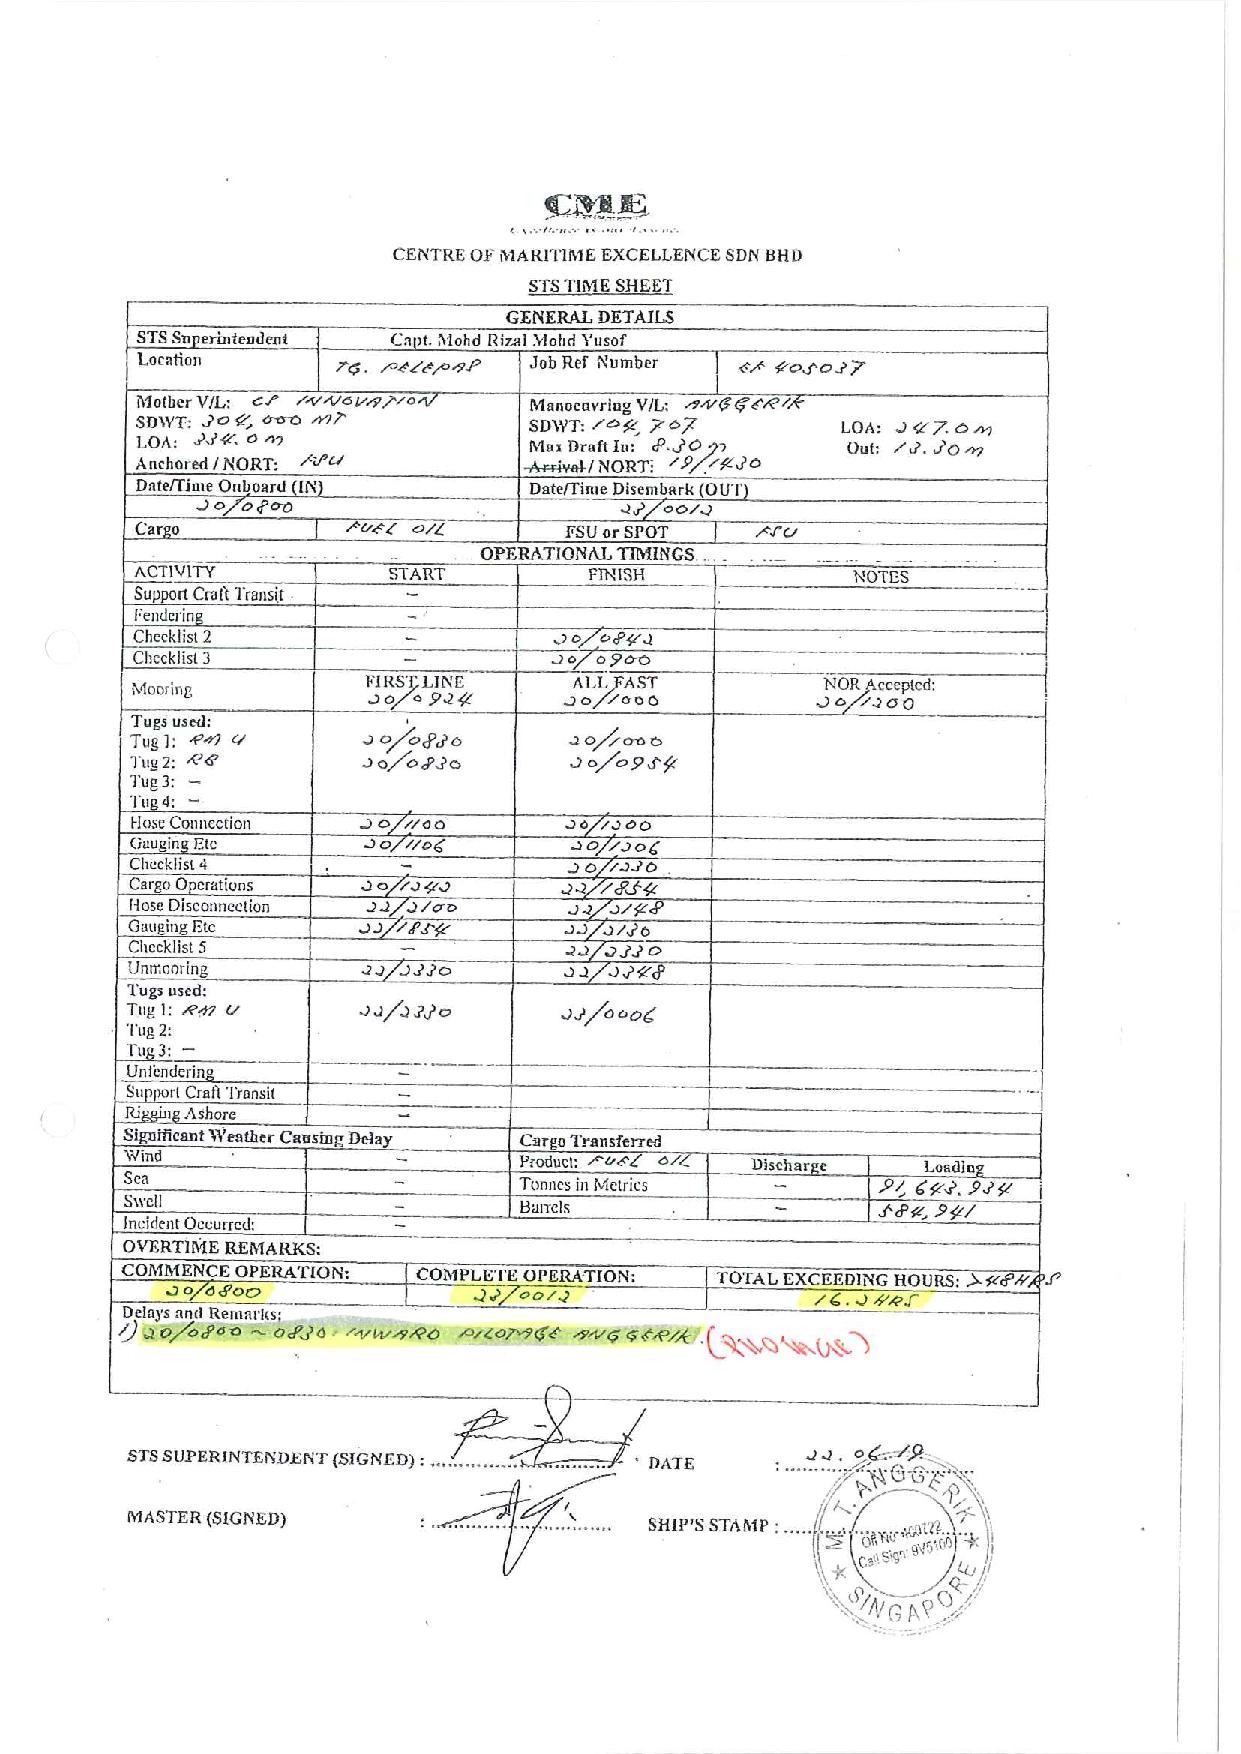 CME
CENTRE OF MARITIME EXCELLENCE SDN BHD
STS TIME SHEET
GENERAL DETAILS
STS Superintendent Capt. Mohd Rizal Mohd Yusof
Location TG. PELEPAS Job Ref Number
Mother V/L: CS INNOVATION Manoeuvring V/L: ANGGERIK
SDWT: 304,000 MT SDWT: 104,707 LOA: 247.0 m
LOA: 334.0 m Max Draft In: 8.30 m Out: 13.30 m
Anchored / NORT: FSU Arrival / NORT: 19/1430
Date/Time Onboard (IN) Date/Time Disembark (OUT)
20/0800 23/0012
Cargo FUEL OIL FSU or SPOT FSU
OPERATIONAL TIMINGS
ACTIVITY START FINISH NOTES
Support Craft Transit -
Fendering -
Checklist 2 - 20/0842
Checklist 3 - 20/0900
Mooring FIRST LINE ALL FAST NOR Accepted:
20/0924 20/1000 20/1200
Tugs used:
Tug 1: RM U 20/0830 20/1000
Tug 2: 20/0830 20/0954
Tug 3: -
Tug 4: -
Hose Connection 20/1100 20/1200
Gauging Etc 20/1106 20/1206
Checklist 4 - 20/1230
Cargo Operations 20/1242 22/1854
Hose Disconnection 22/2100 22/2148
Gauging Etc 22/1854 22/2130
Checklist 5 - 22/2330
Unmooring 22/2330 22/2348
Tugs used:
Tug 1: RM U 22/2330 23/0006
Tug 2:
Tug 3: -
Unfendering -
Support Craft Transit -
Rigging Ashore -
Significant Weather Causing Delay Cargo Transferred
Wind - Product: FUEL OIL Discharge Loading
Sea - Tonnes in Metrics - 91,643.934
Swell - Barrels - 584,941
Incident Occurred: -
OVERTIME REMARKS:
COMMENCE OPERATION: COMPLETE OPERATION: TOTAL EXCEEDING HOURS: >48HRS
20/0800 23/0012 16.2 HRS
Delays and Remarks:
1) 20/0800 ~ 0830: INWARD PILOTAGE ANGGERIK.
STS SUPERINTENDENT (SIGNED) : DATE : 22.06.19
MASTER (SIGNED) : SHIP'S STAMP :
M.T. ANGGERIK
Call Sign: 9V5100
SINGAPORE